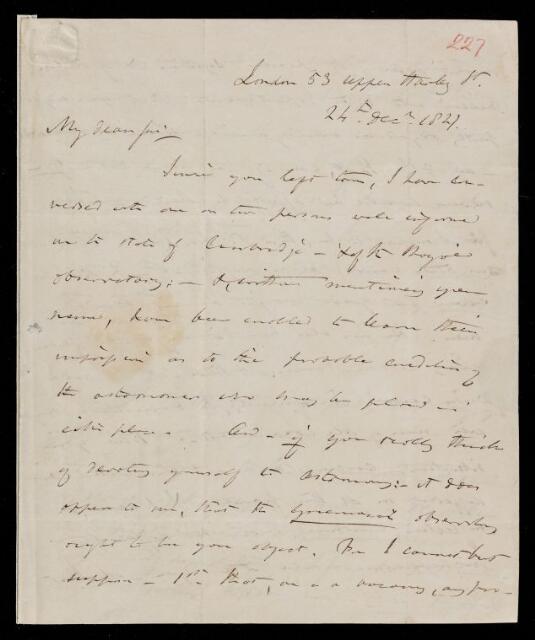 227
London 53 Upper Harley St.
24th Decr. 1821.
My dear Sir
Since you left town, I have con-
versed with one or two persons well informed
on the state of Cambridge – & of the Royal
observatory; – &, without mentioning your
name, have been enabled to learn their
as to the probable condition of
the astronomer who may be placed in
either place. And – if you really think
of devoting yourself to Astronomy; – it does
appear to me, that the Greenwich observatory
ought to be your object. For I cannot but
suppose – 1st. that, on a vacancy, any